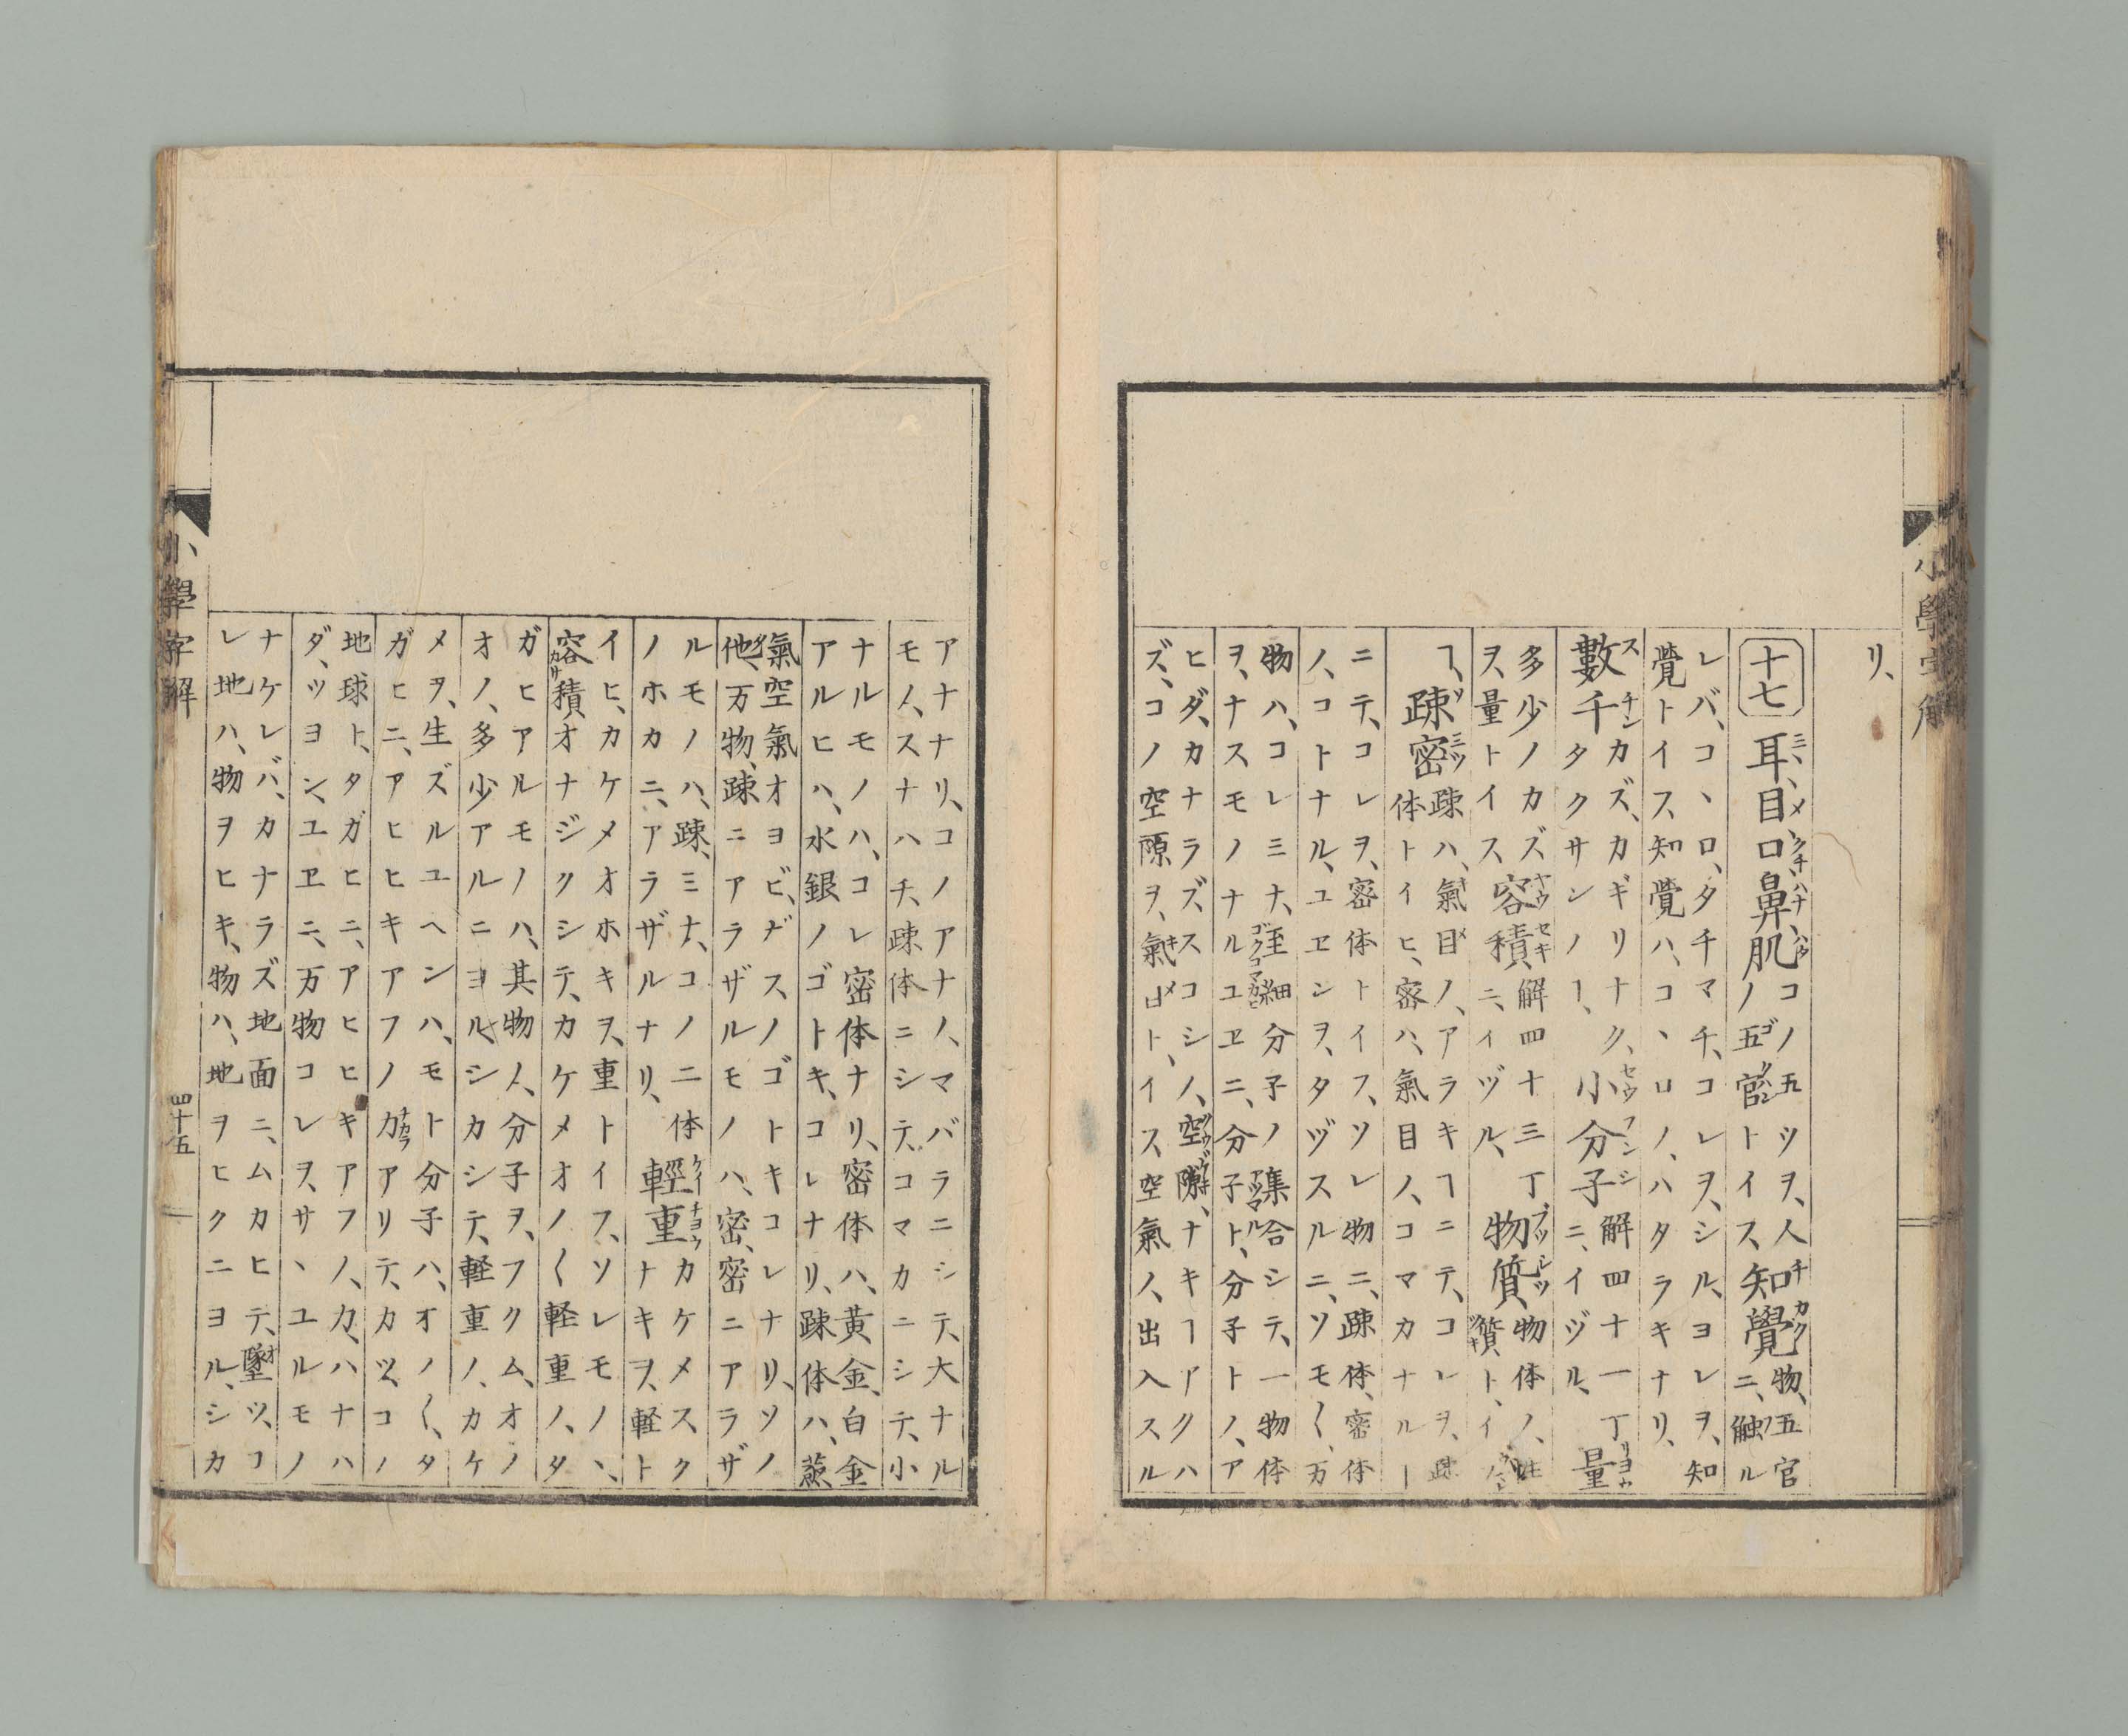 小學字解
リ、
十七 耳、目口鼻肌 コノ五ツヲ、人
ノ五官トイス、 知覺 物、五官
ニ、触ル
レバ、コヽロ、タチマチ、コレヲ、シル、ヨレヲ、知
覺トイス知覺ハ、コヽロノ、ハタラキナリ、
數千 カズ、カギリナク、
タクサンノヿ、 小分子 解四十一丁
ニ、イヅル、 量
多少ノカズ
ヲ、量トイス、 容積 解四十三丁
ニ、イヅル、 物質 物体ノ、性
質ト、イ
ヿ、 疎密 疎ハ、氣目ノ、アラキヿニテ、コレヲ、疎
体トイヒ、密ハ、氣目ノ、コマカナルヿ
ニテ、コレヲ、密体トイフ、ソレ物ニ、疎体、密体
ノ、コトナル、ユヱンヲ、タヅスルニ、ソモ〳〵、万
物ハ、コレミナ、至細分子ノ集合シテ、一物体
ヲ、ナスモノナルユヱニ、分子ト、分子トノ、ア
ヒダ、カナラズ、スコシノ、空隙、ナキヿアタハ
ズ、コノ空隙ヲ、氣目ト、イス空氣ノ、出入スル
アナナリ、コノアナノ、マバラニシテ、大ナル
モノ、スナハチ、疎体ニシテ、コマカニシテ、小
ナルモノハ、コレ密体ナリ、密体ハ、黄金、白金
アルヒハ、水銀ノゴトキ、コレナリ、疎体ハ、蒸
氣空氣オヨビ、ガスノゴトキコレナリ、ソノ
他、万物、疎ニアラザルモノハ、密、密ニアラザ
ルモノハ、疎、ミナ、コノ二体
ノホカニ、アラザルナリ、 輕重 カケメスク
ナキヲ、軽ト
イヒ、カケメオホキヲ、重トイフ、ソレモノヽ、
容積オナジクシテ、カケメオノ〳〵軽重ノ、タ
ガヒアルモノハ、其物ノ、分子ヲ、フクム、オノ
オノ、多少アルニヨル、シカシテ、軽重ノ、カケ
メヲ、生ズルユヘンハ、モト分子ハ、オノ〳〵、タ
ガヒニ、アヒヒキアフノ力アリテ、カツ、コノ
地球ト、タガヒニ、アヒヒキアフノ、力、ハナハ
ダ、ツヨシ、ユヱニ、万物コレヲ、サヽユルモノ
ナケレバ、カナラズ地面ニ、ムカヒテ、墜ツ、コ
レ地ハ、物ヲヒキ、物ハ、地ヲヒクニヨル、シカ
小學字解 四十五